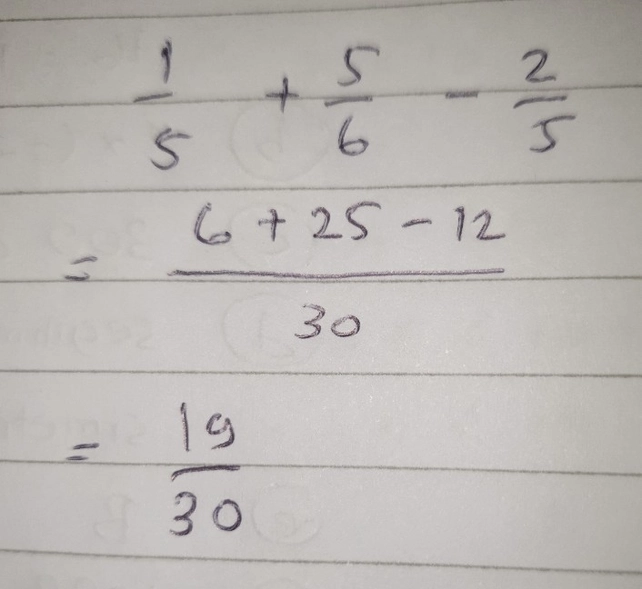 1/5 + 5/6 - 2/5
= (6 + 25 - 12)/30
= 19/30